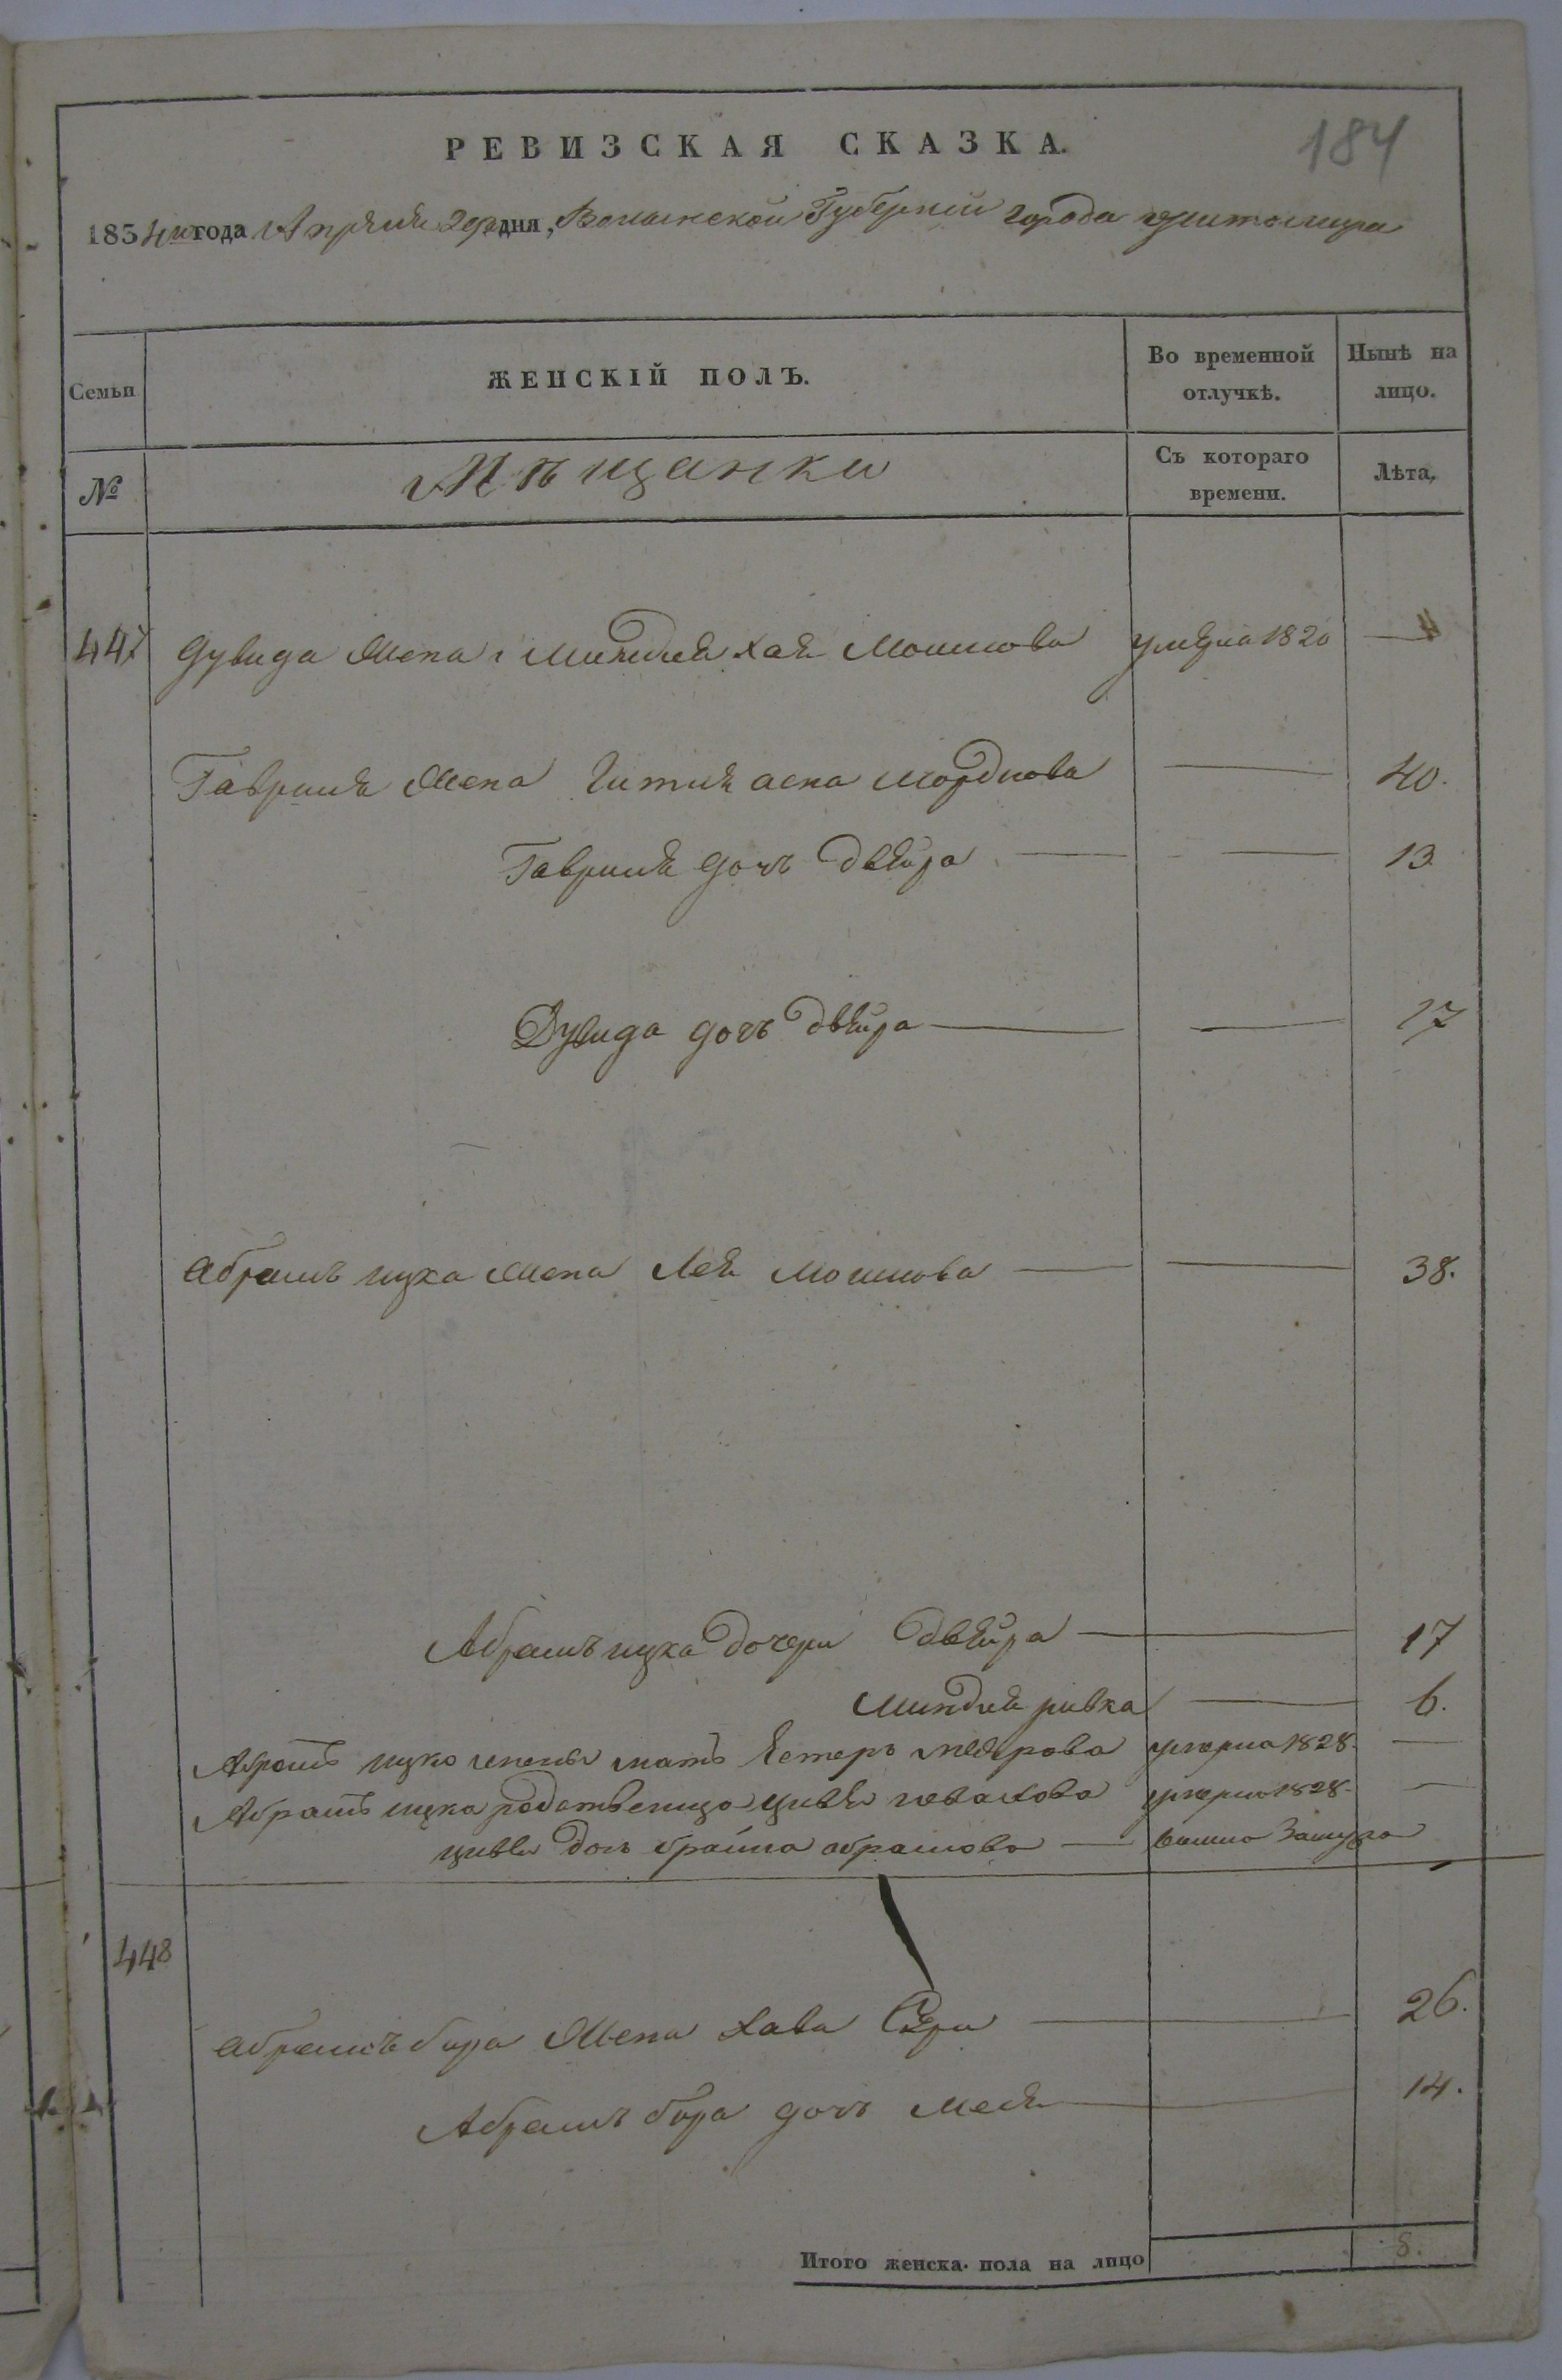 184
РЕВИЗСКАЯ СКАЗКА.
1834го года Апреля 29го дня, Волынской Губерніи города Житомира
Семьи
ЖЕНСКІЙ ПОЛЪ.
Во временной отлучкѣ.
Нынѣ на лицо.
№
Мѣщанки
Съ котораго времени.
Лѣта.
447 Дувида жена Миндля Хая Мошкова умерла 1820 —
Гавриля жена Гитля Мордкова — 40.
Гавриля дочъ двейра — — 13
Дувида дочъ двейра — — 17
Абрамъ ицка жена Лея Мошкова — — 38.
Абрамъ ицка дочери двейра — 17
Миндля ривка — 6.
Абрамъ ицка жены мать Естеръ умерла 1828. —
Абрамъ ицка родственица цивья умерла 1828. —
цивьи дочъ абрамова — вышла Замужъ
448
Абрамъ бера жена Хава — 26.
Абрамъ бера дочъ — 14.
Итого женска. пола на лицо 8.